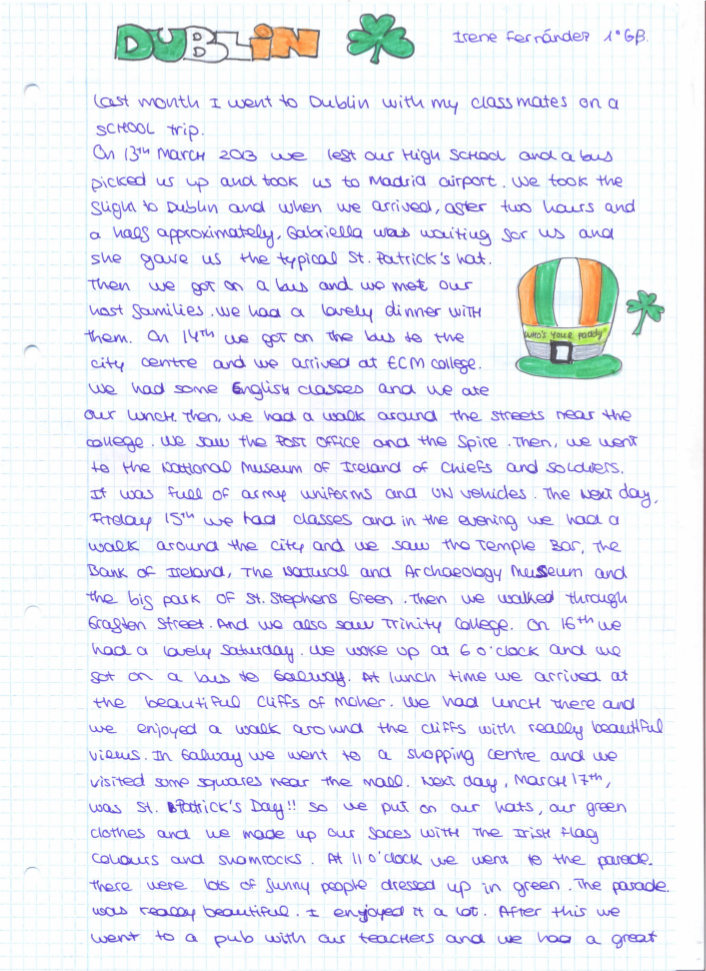 DUBLIN
Irene Fernández 1º GB.
Last month I went to Dublin with my classmates on a
SCHOOL trip.
On 13TH March 2013 we left our High School and a bus
picked us up and took us to Madrid airport. We took the
flight to Dublin and when we arrived, after two hours and
a half approximately, Gabriella was waiting for us and
she gave us the typical St. Patrick's hat.
Then we got on a bus and we met our
host families. We had a lovely dinner with
them. On 14TH we got on the bus to the
city centre and we arrived at ECM college.
We had some English classes and we ate
our lunch. Then, we had a walk around the streets near the
college. We saw the Post Office and the Spire. Then, we went
to the National Museum of Ireland of Chiefs and soldiers.
It was full of army uniforms and UN vehicles. The next day,
Friday 15TH we had classes and in the evening we had a
walk around the city and we saw the Temple Bar, the
Bank of Ireland, The Natural and Archaeology Museum and
the big park of St. Stephens Green. Then we walked through
Grafton Street. And we also saw Trinity College. On 16th we
had a lovely Saturday. We woke up at 6 o'clock and we
got on a bus to Galway. At lunch time we arrived at
the beautiful Cliffs of Moher. We had lunch there and
we enjoyed a walk around the cliffs with really beautiful
views. In Galway we went to a shopping centre and we
visited some squares near the mall. Next day, March 17th,
was St. Patrick's Day!! So we put on our hats, our green
clothes and we made up our faces with the Irish flag
colours and shamrocks. At 11 o'clock we went to the parade.
There were lots of funny people dressed up in green. The parade
was really beautiful. I enjoyed it a lot. After this we
went to a pub with our teachers and we had a great
WHO'S YOUR PADDY?